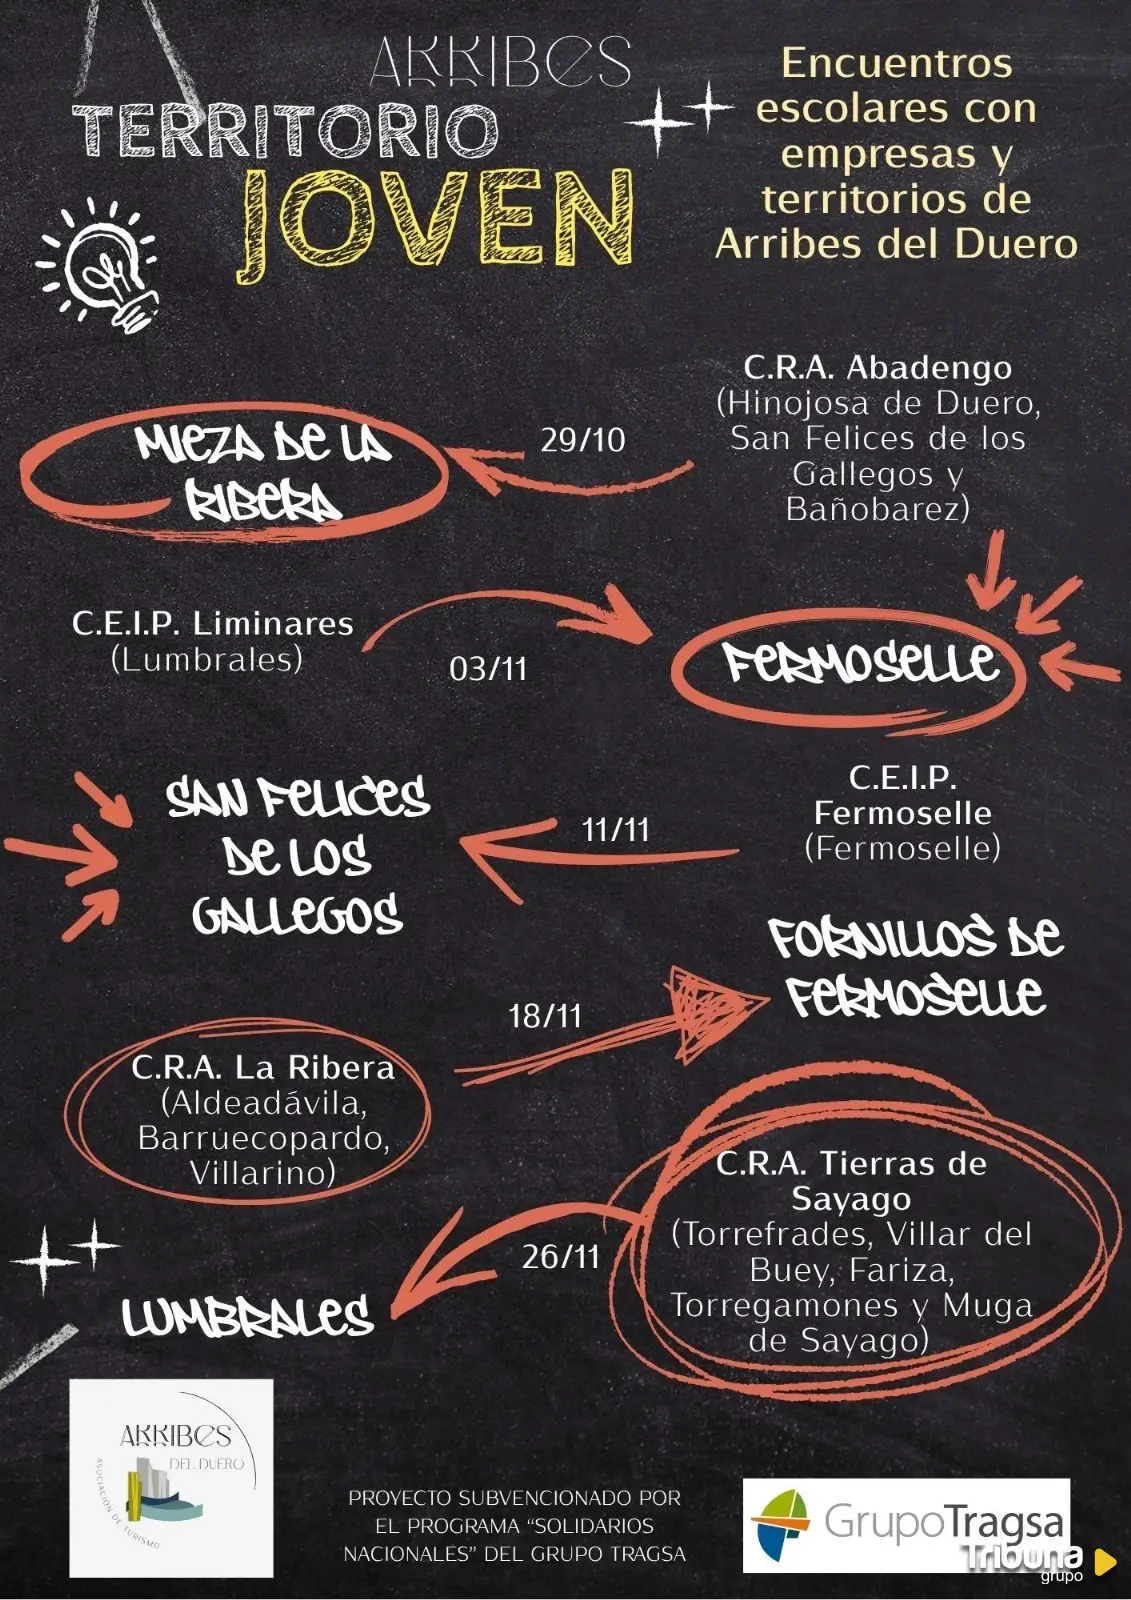 ARRIBES
TERRITORIO
JOVEN
Encuentros
escolares con
empresas y
territorios de
Arribes del Duero
C.R.A. Abadengo
(Hinojosa de Duero,
San Felices de los
Gallegos y
Bañobarez)
29/10
MIEZA DE LA
RIBERA
C.E.I.P. Liminares
(Lumbrales)
03/11
FERMOSELLE
C.E.I.P.
Fermoselle
(Fermoselle)
11/11
SAN FELICES
DE LOS
GALLEGOS
FORNILLOS DE
FERMOSELLE
18/11
C.R.A. La Ribera
(Aldeadávila,
Barruecopardo,
Villarino)
C.R.A. Tierras de
Sayago
(Torrefrades, Villar del
Buey, Fariza,
Torregamones y Muga
de Sayago)
26/11
LUMBRALES
ARRIBES
DEL DUERO
ASOCIACIÓN DE TURISMO
PROYECTO SUBVENCIONADO POR
EL PROGRAMA “SOLIDARIOS
NACIONALES” DEL GRUPO TRAGSA
GrupoTragsa
Tribuna
grupo